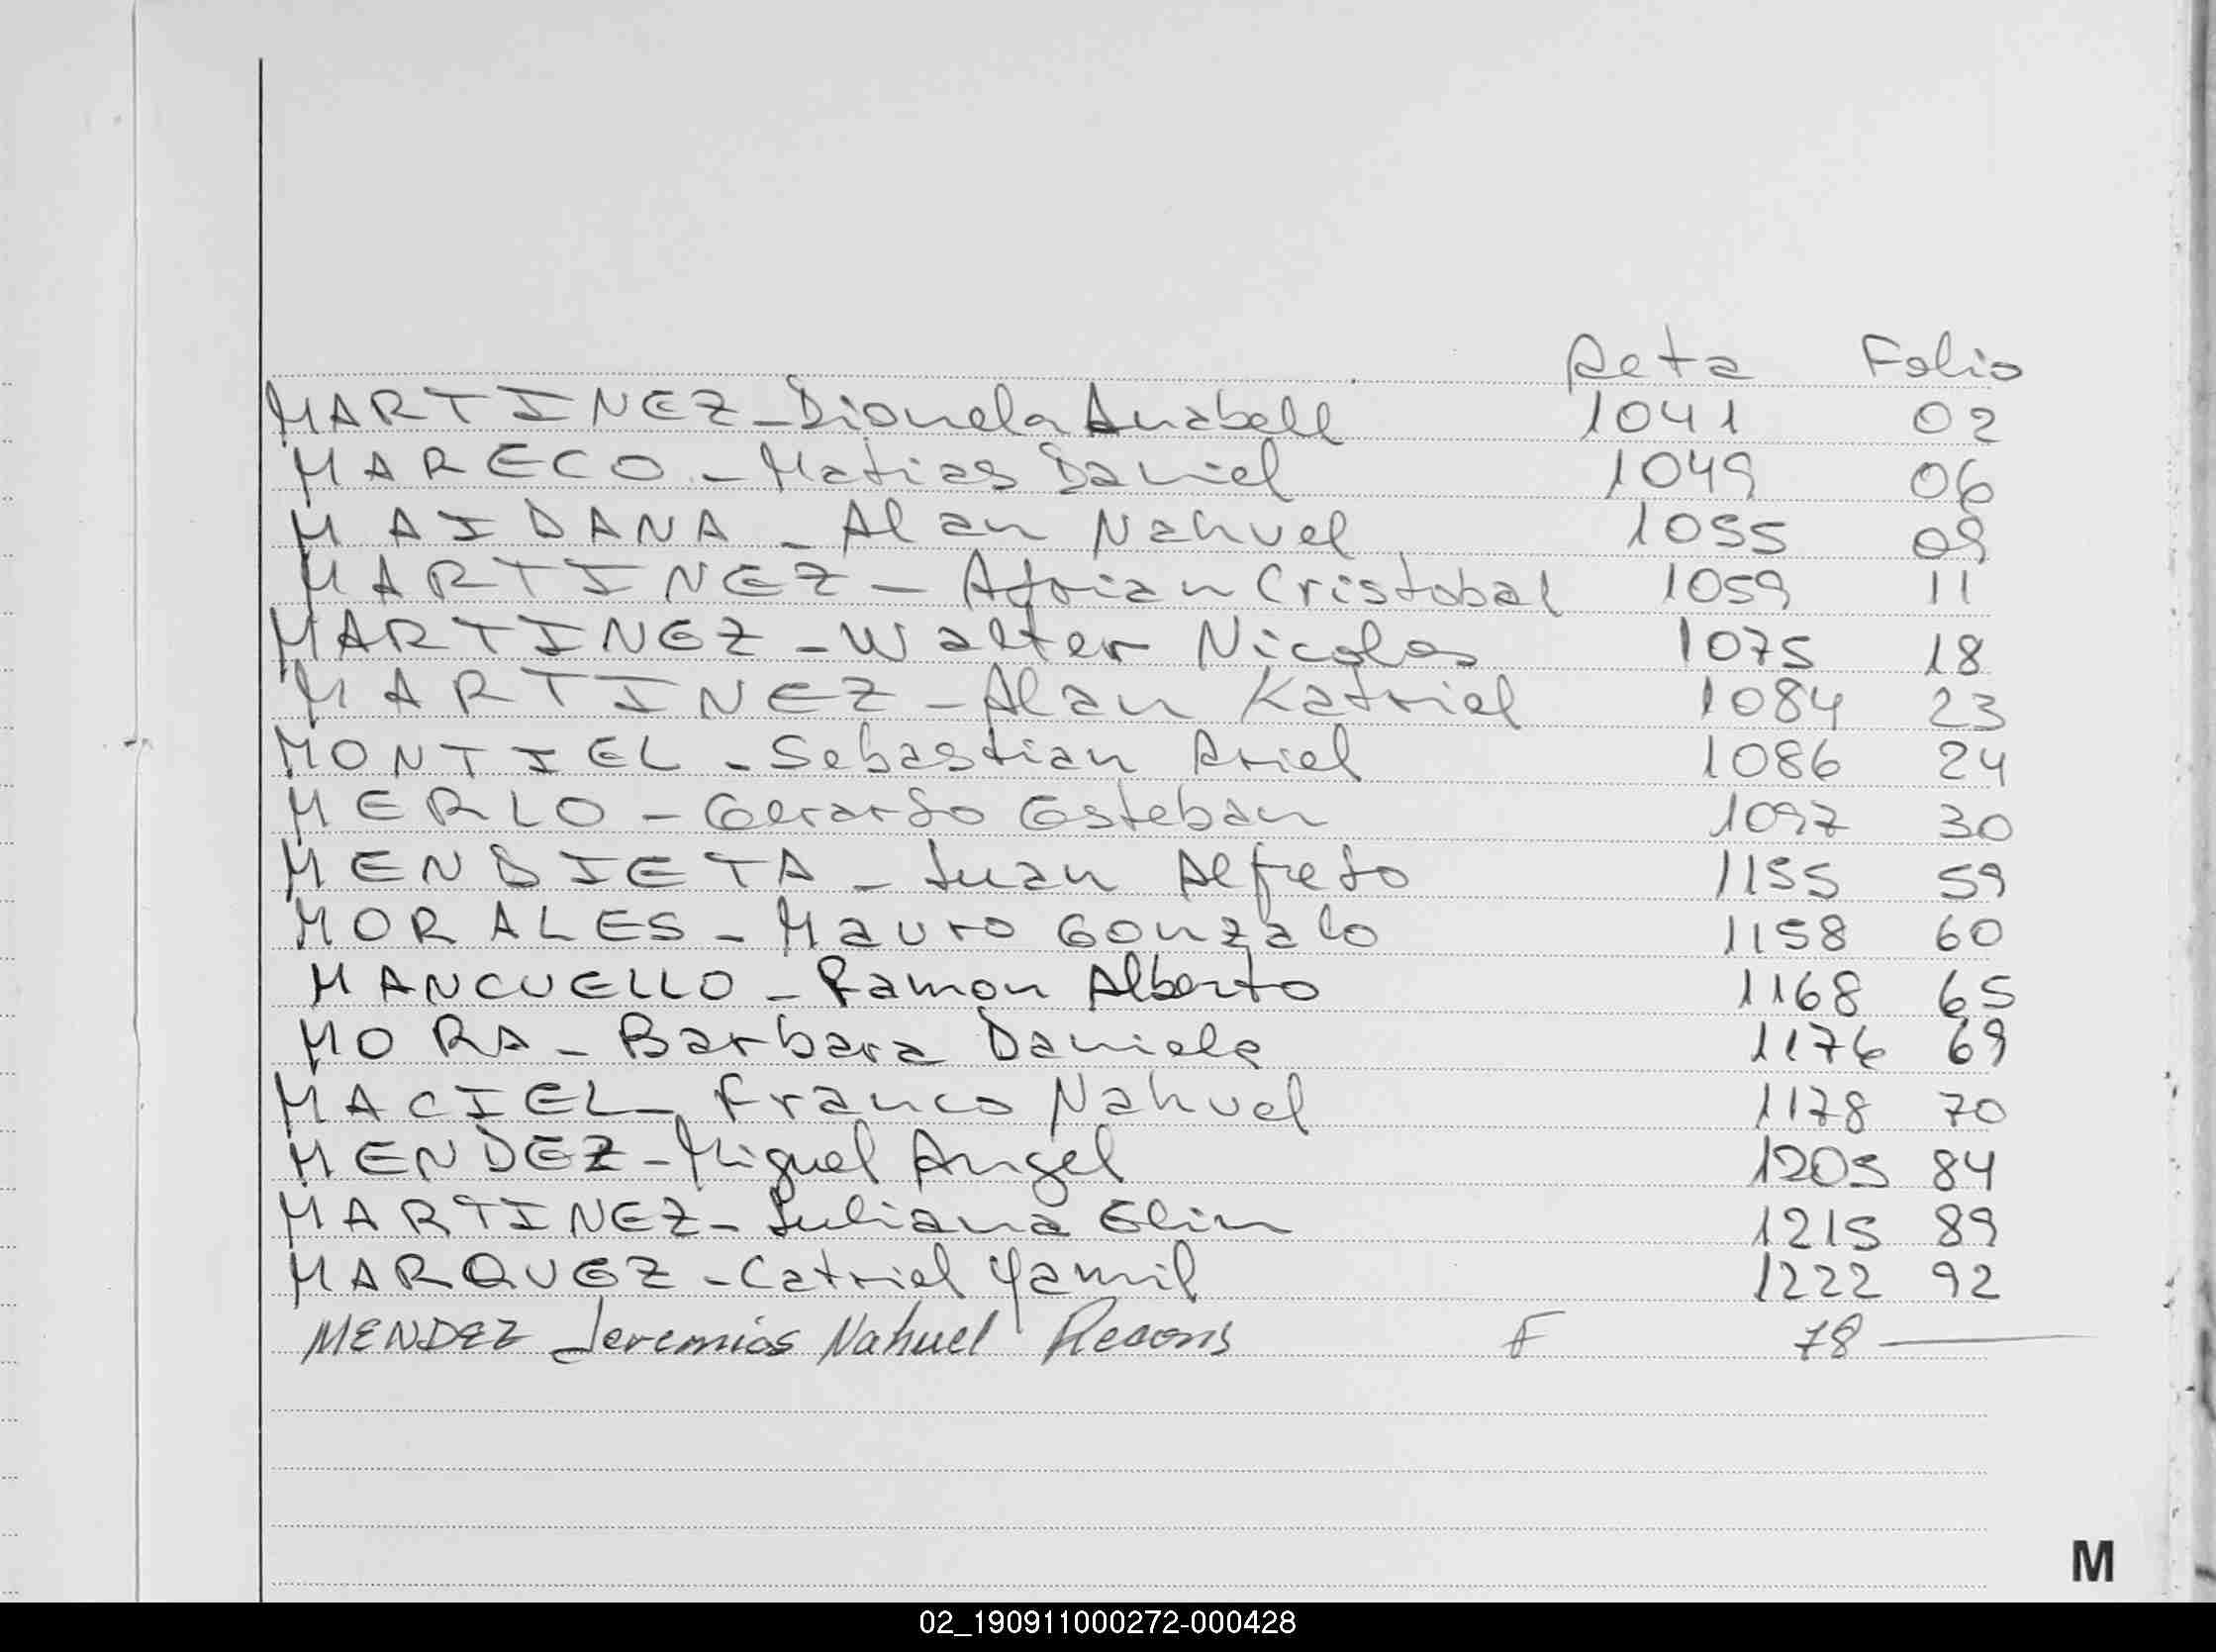 Acta Folio
MARTINEZ - Dionela Anabell 1041 02
MARECO - Matias Daniel 1049 06
MAIDANA - Alan Nahuel 1055 09
MARTINEZ - Adrian Cristobal 1059 11
MARTINEZ - Walter Nicolas 1075 18
MARTINEZ - Alan Katriel 1084 23
MONTIEL - Sebastian Ariel 1086 24
MERLO - Gerardo Esteban 1097 30
MENDIETA - Juan Alfredo 1155 59
MORALES - Mauro Gonzalo 1158 60
MANCUELLO - Ramon Alberto 1168 65
MORA - Barbara Daniela 1176 69
MACIEL - Franco Nahuel 1178 70
MENDEZ - Miguel Angel 1205 84
MARTINEZ - Juliana Elin 1215 89
MARQUEZ - Catriel Yamil 1222 92
MENDEZ Jeremias Nahuel F 78
M
02_190911000272-000428